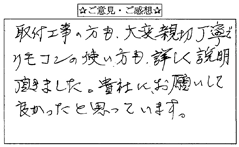 ☆ご意見・ご感想☆
取付工事の方も、大変親切丁寧で
リモコンの使い方も、詳しく説明
頂きました。貴社にお願いして
良かったと思っています。